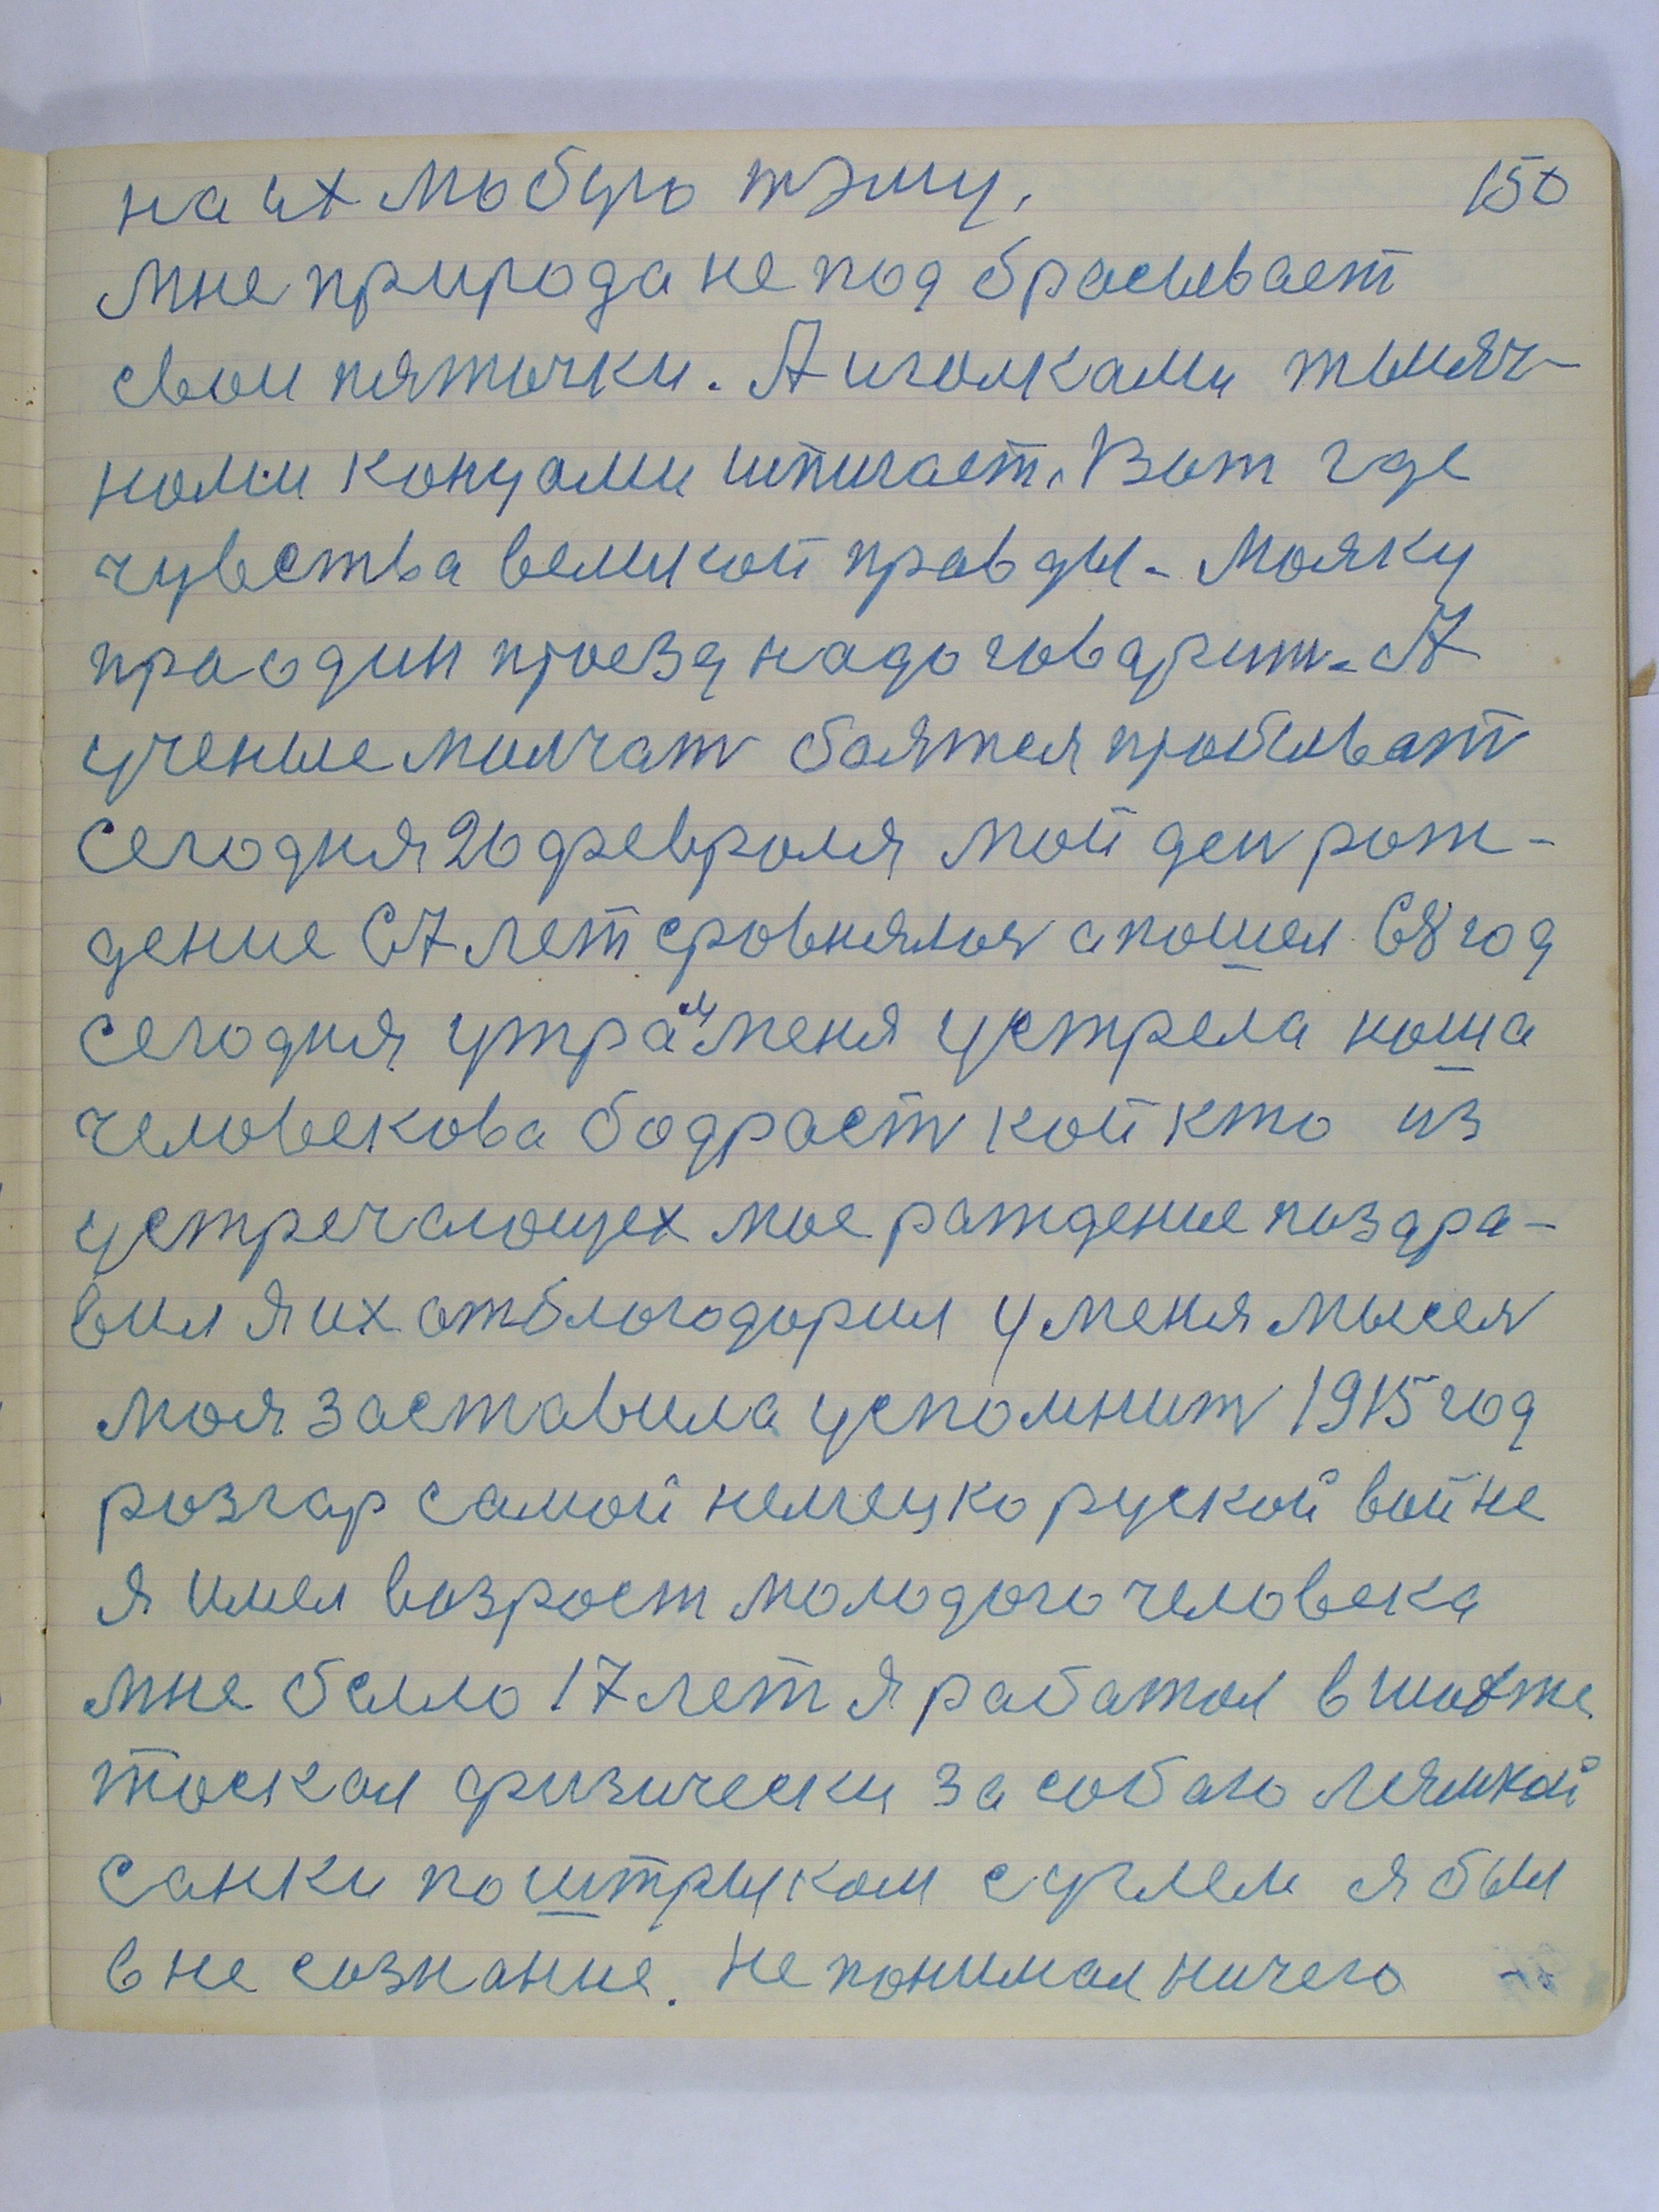 на их любую тэму, 150
мне природа не под брасывает
свои пяточки. А иголками тыняч-
номи концами шпигает. Вот где
чувества великой правды. Мояку
праодин проезд надо говарит. А
ученые молчат боятся пробыват
Сегодня 20 февроля мой ден рож-
дение 67 лет сровнялося а пошел 68 год
сегодня утрам меня устрела ноша
человекова бодраст кой кто из
устречающех мое раждение поздра-
вил я их отблогодорил у меня мысля
моя заставила успомнит 1915 год
розгар самой немецко руской войне
я имел возрост молодого человека
мне было 17 лет я работол в шахте
тоскал физически за собаю лямкой
санки по штрыком с углем я был
в не сознание. Не понимал ничего